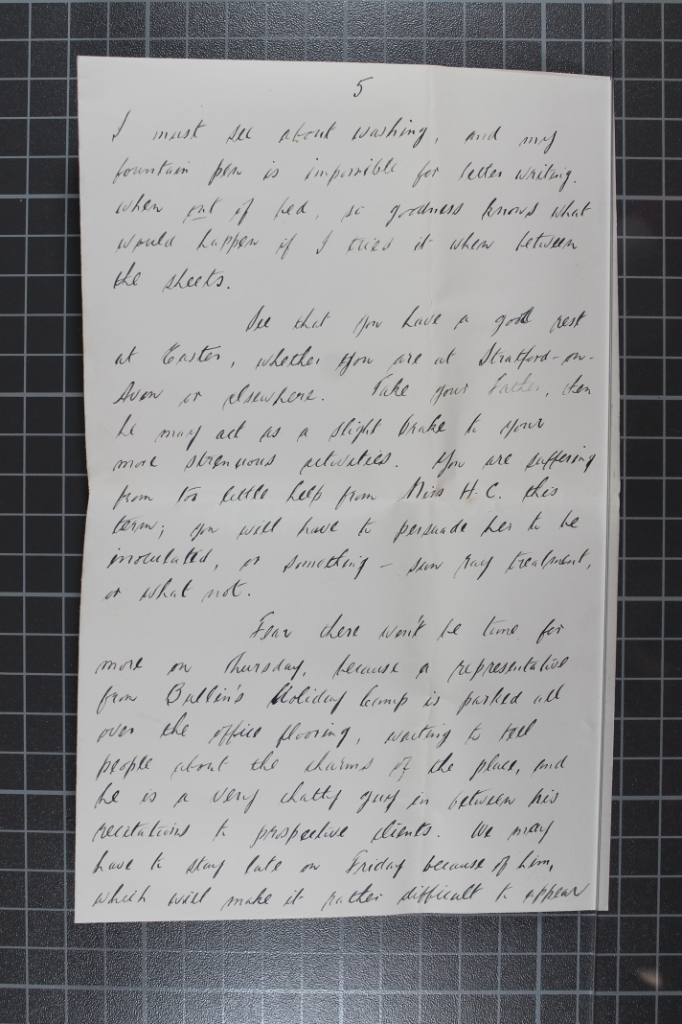 5
I must see about washing, and my
fountain pen is impossible for letter writing
when out of bed, so goodness knows what
would happen if I tried it when between
the sheets.
See that you have a good rest
at Easter, whether you are at Stratford-on-
Avon or elsewhere. Take your Father, then
he may act as a slight brake to your
more strenuous activities. You are suffering
from too little help from Miss H.C. this
term; you will have to persuade her to be
inoculated, or something - sun ray treatment,
or what not.
Fear there won't be time for
more on Thursday, because a representative
from Butlin's Holiday Camp is parked all
over the office flooring, waiting to tell
people about the charms of the place, and
he is a very chatty guy in between his
recitations to prospective clients. We may
have to stay late on Friday because of him,
which will make it rather difficult to appear